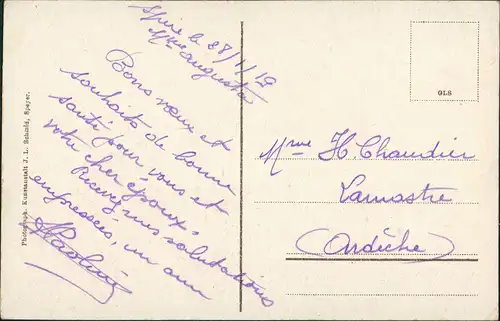 Spire le 28/1/19
Mme Augusta
Bons vœux et
souhaits de bonne
santé pour vous et
votre cher époux.
Recevez mes salutations
empressées, un ami
Mme H. Chaudier
Lamastre
(Ardèche)
GLS
Photograph. Kunstanstalt J. L. Schmid, Speyer.